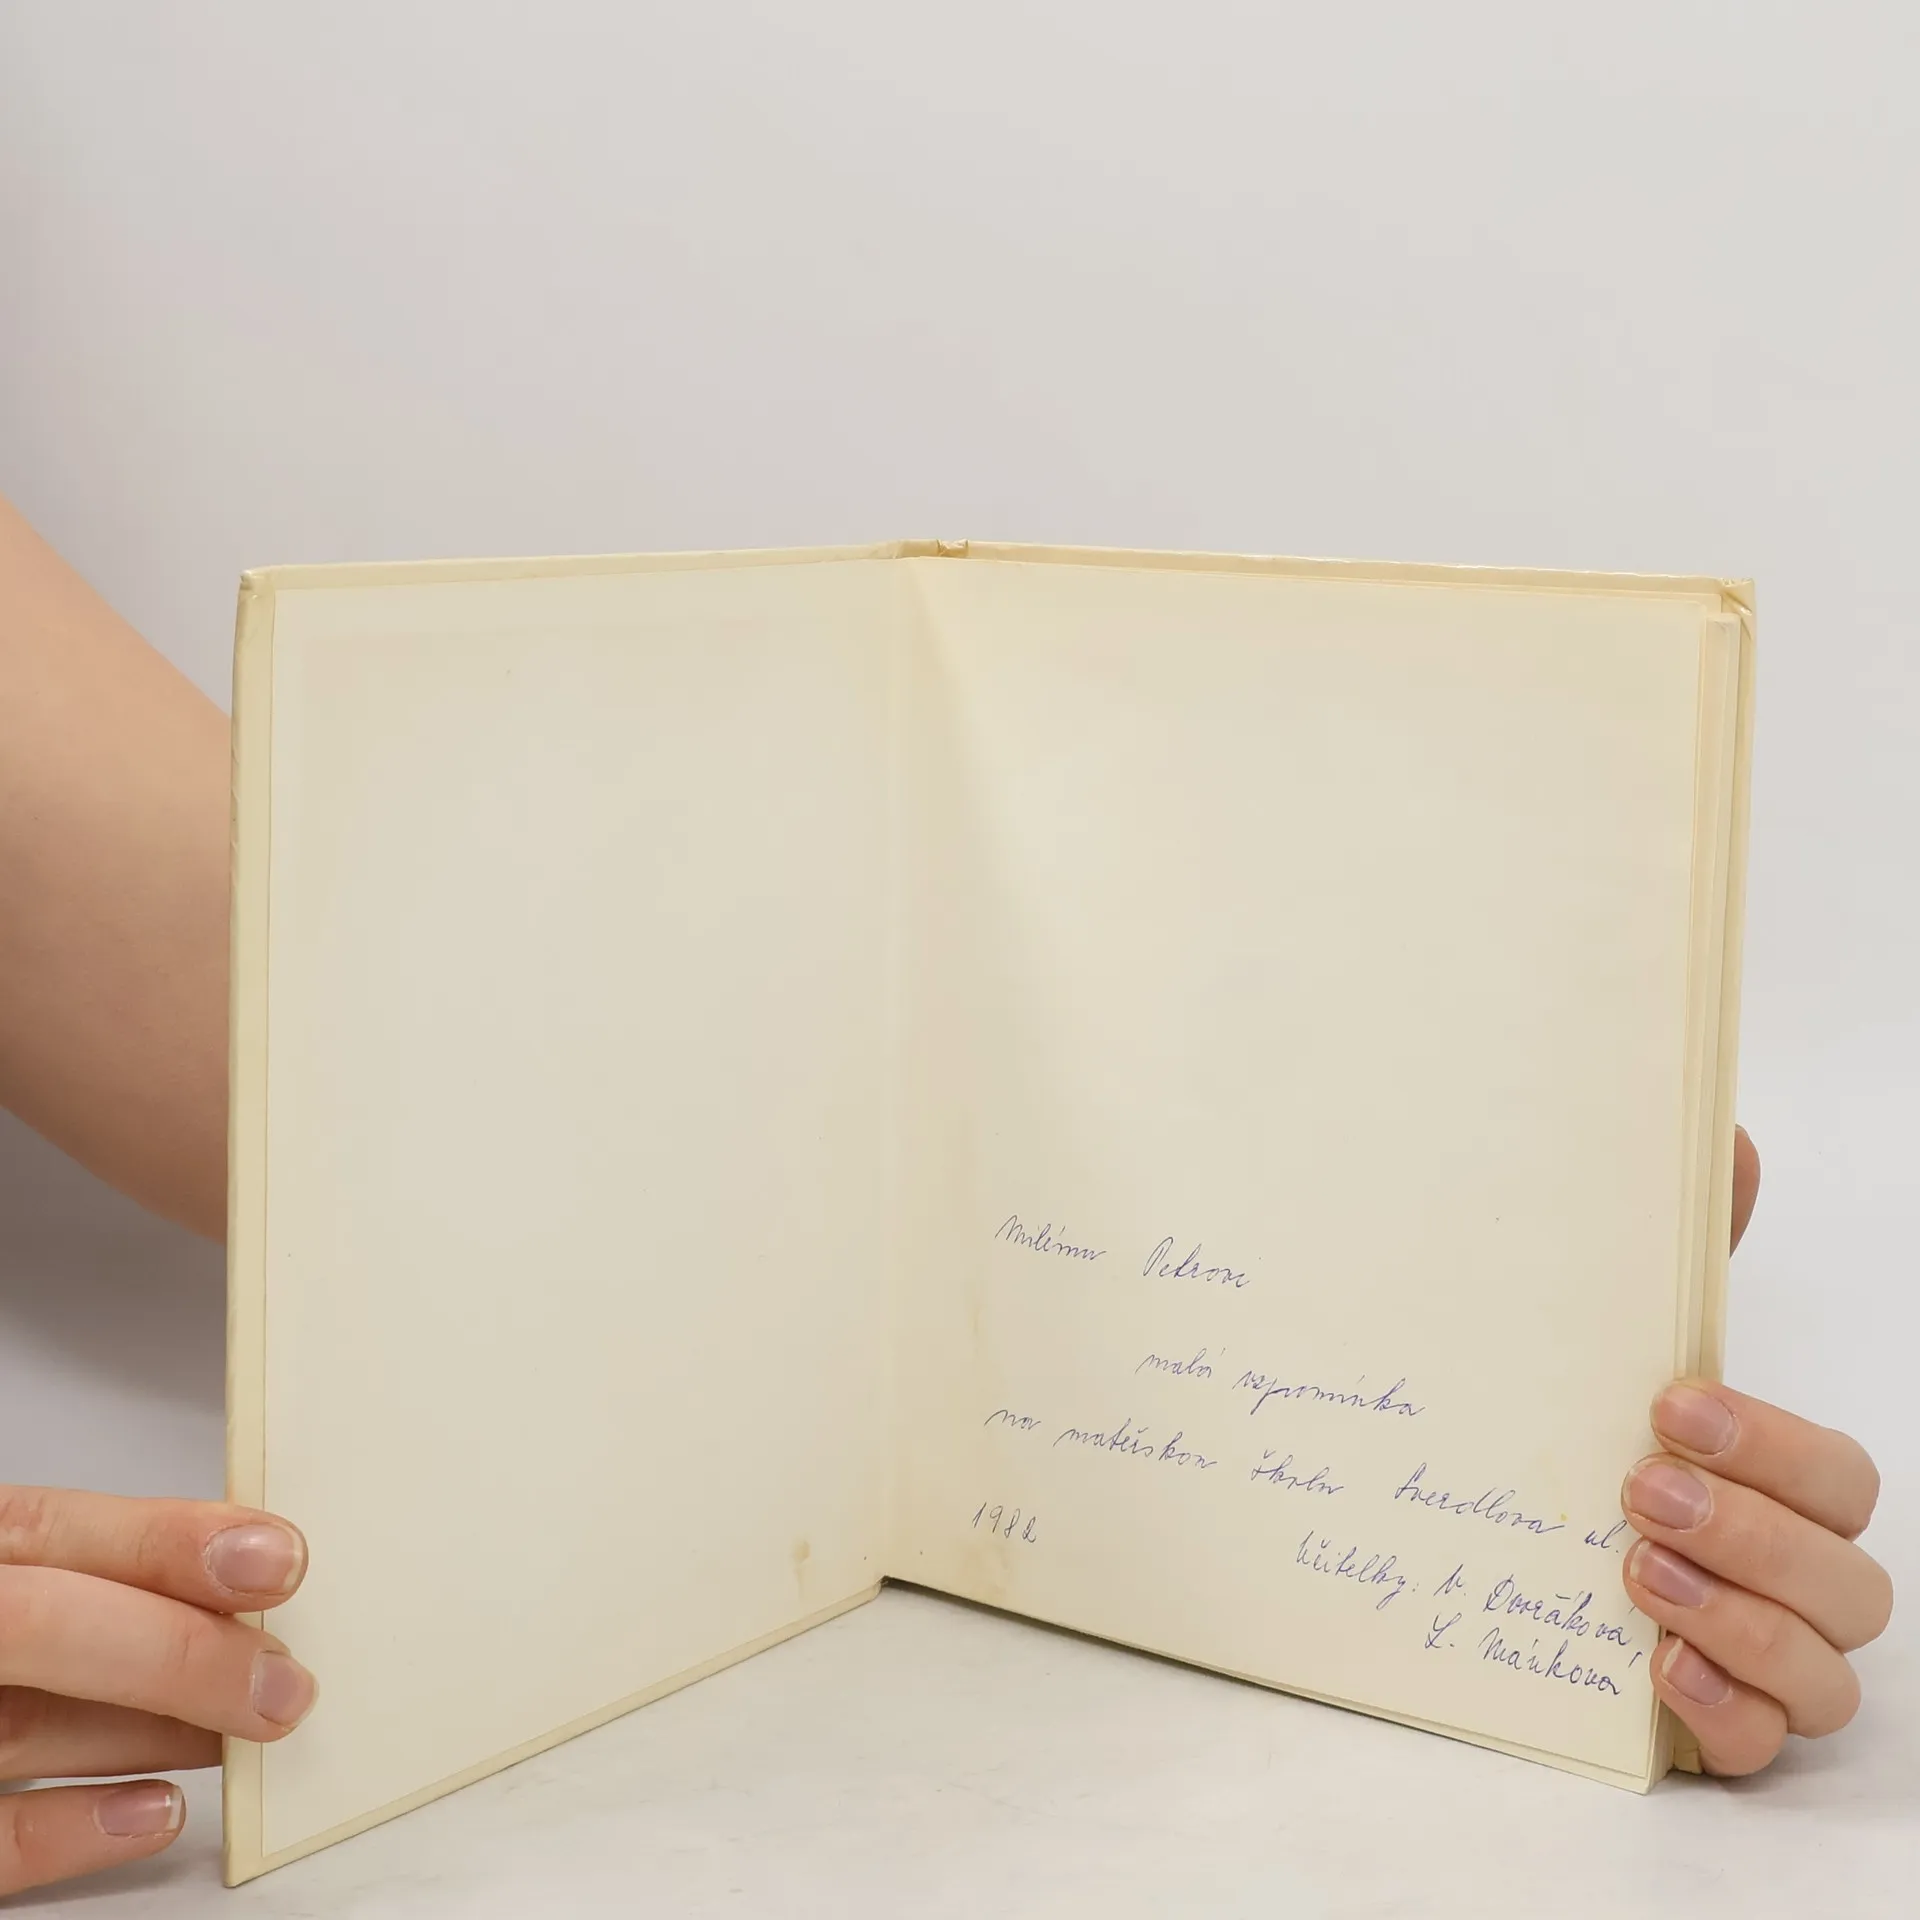 Milému Petrovi
malá vzpomínka
na mateřskou školu Sverdlova ul.
1982
Učitelky: V. Dvořáková,
L. Mánková